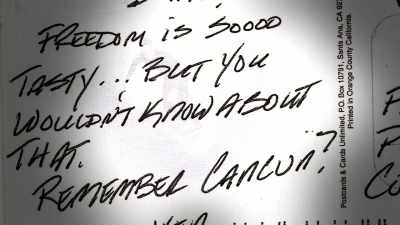 FREEDOM IS SOOOO
TASTY... BUT YOU
WOULDN'T KNOW ABOUT
THAT.
REMEMBER CANCUN?
Postcards & Cards Unlimited, P.O. Box 10791, Santa Ana, CA 92
Printed in Orange County California.